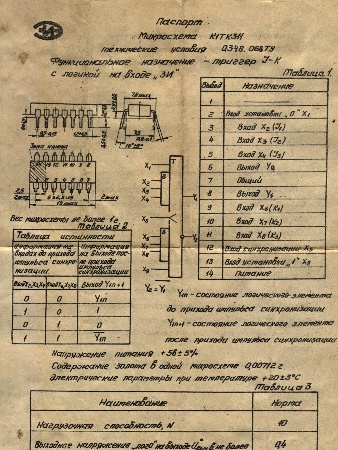 Паспорт
Микросхема К1ТК311
технические условия
Функциональное назначение - триггер J-K
с логикой на входе „3И"
Таблица 1.
Вывод Назначение
1
2 Вход установки „0" X1
3 Вход X2 (J1)
4 Вход X3 (J2)
5 Вход X4 (J3)
6 Выход Y2
7 Общий
8 Выход Y1
9 Вход X6 (K1)
10 Вход X7 (K2)
11 Вход X8 (K3)
12 Вход синхронизации X5
13 Вход установки „1" X9
14 Питание
Вес микросхемы не более 1г.
Таблица 2
Таблица истинности
Информация на входах до прихода импульса синхронизации.
Информация на выходе после прихода импульса синхронизации
Выход Yn+1
0 0 Yin
0 1 0
1 0 1
1 1 Yin
Yin - состояние логического элемента
до прихода импульса синхронизации
Yin+1 - состояние логического элемента
после прихода импульса синхронизации
Напряжение питания +5В ± 5%
Содержание золота в одной микросхеме 0,00712 г
Электрические параметры при температуре +20±5°C
Таблица 3
Наименование Норма
Нагрузочная способность, N 10
Выходное напряжение „лог0" на выходе не более 0,4